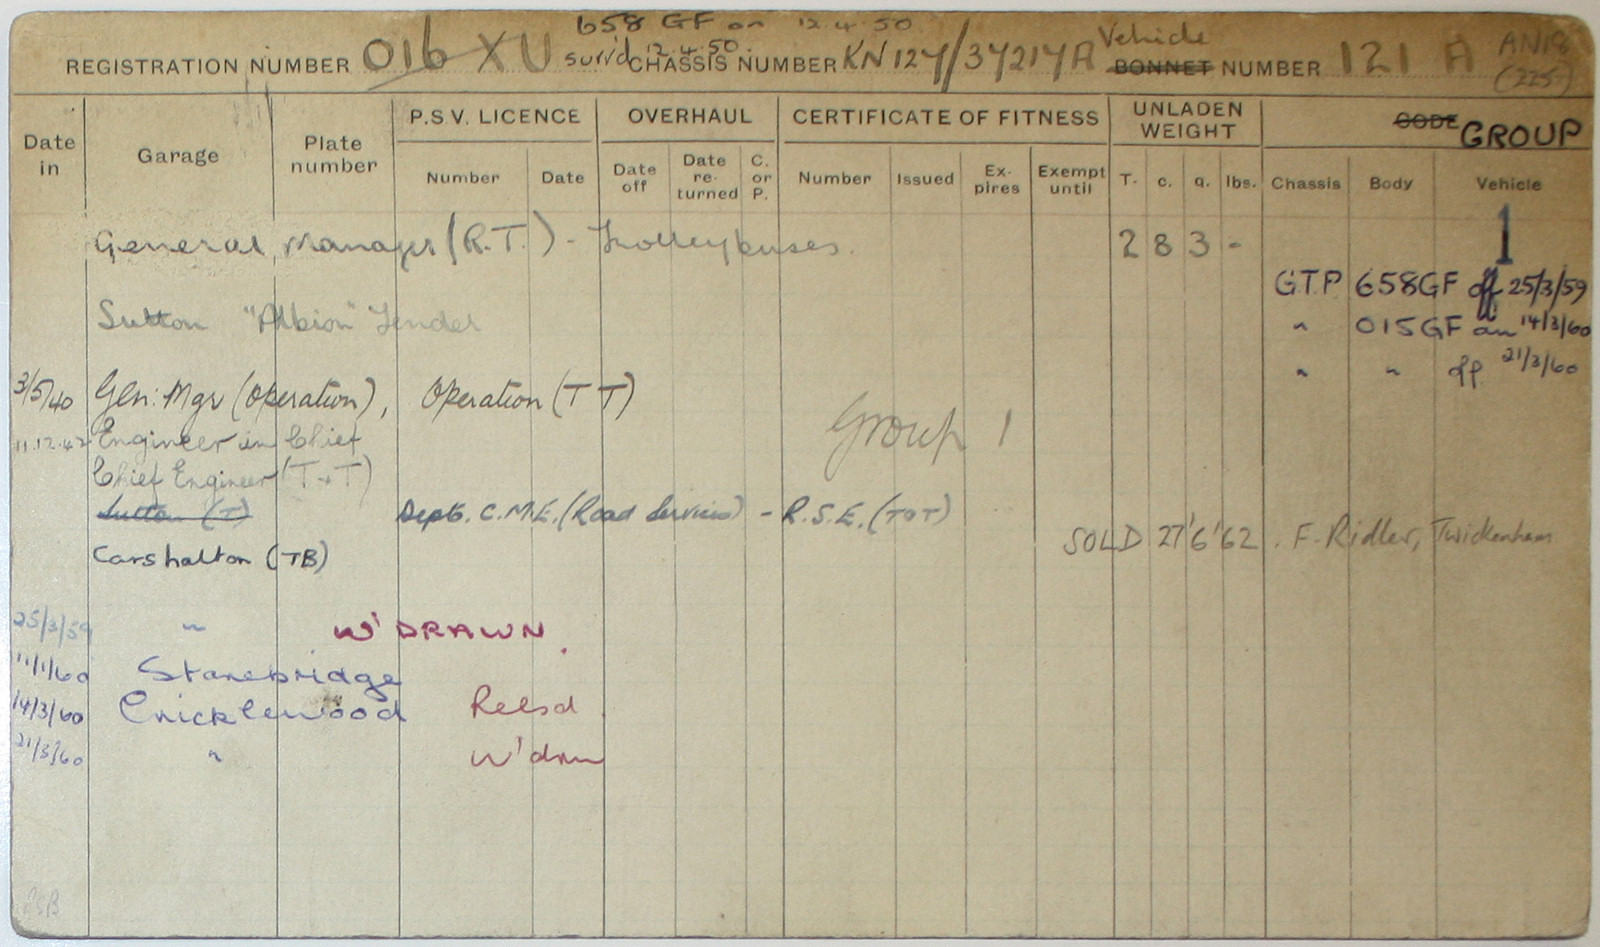 658 GF on 12.4.50
REGISTRATION NUMBER 016 XU surr'd 12.4.50. CHASSIS NUMBER KN127/37217A Vehicle BONNET NUMBER 121 A AN18 (225)
Date in Garage Plate number P.S.V. LICENCE OVERHAUL CERTIFICATE OF FITNESS UNLADEN WEIGHT CODE GROUP
Number Date Date off Date re-turned C. or P. Number Issued Ex-pires Exempt until T. c. q. lbs. Chassis Body Vehicle
General Manager (R.T.) - Trolleybuses. 2 8 3 - 1
GTP 658GF off 25/3/59
Sutton "Albion" Tender " 015GF on 14/3/60
" " off 21/3/60
3/5/40 Gen: Mgr (Operation), Operation (T T)
Group 1
11.12.42 Engineer in Chief
Chief Engineer (T+T)
Sutton (T) Dept. C.M.E. (Road Services) - R.S.E. (TOT)
SOLD 27'6'62. F. Ridler, Twickenham
Carshalton (TB)
25/3/59 " W'DRAWN.
11/1/60 Stonebridge
14/3/60 Cricklewood Relsd.
21/3/60 " W'drn